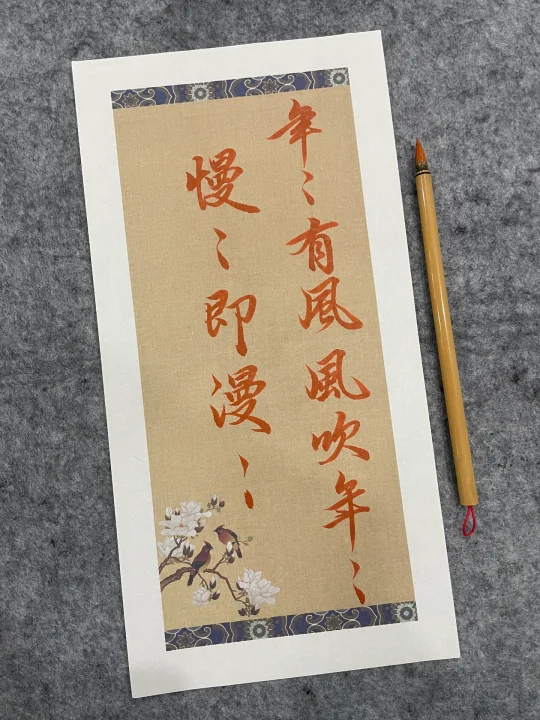 年〻有風風吹年〻
慢〻即漫〻